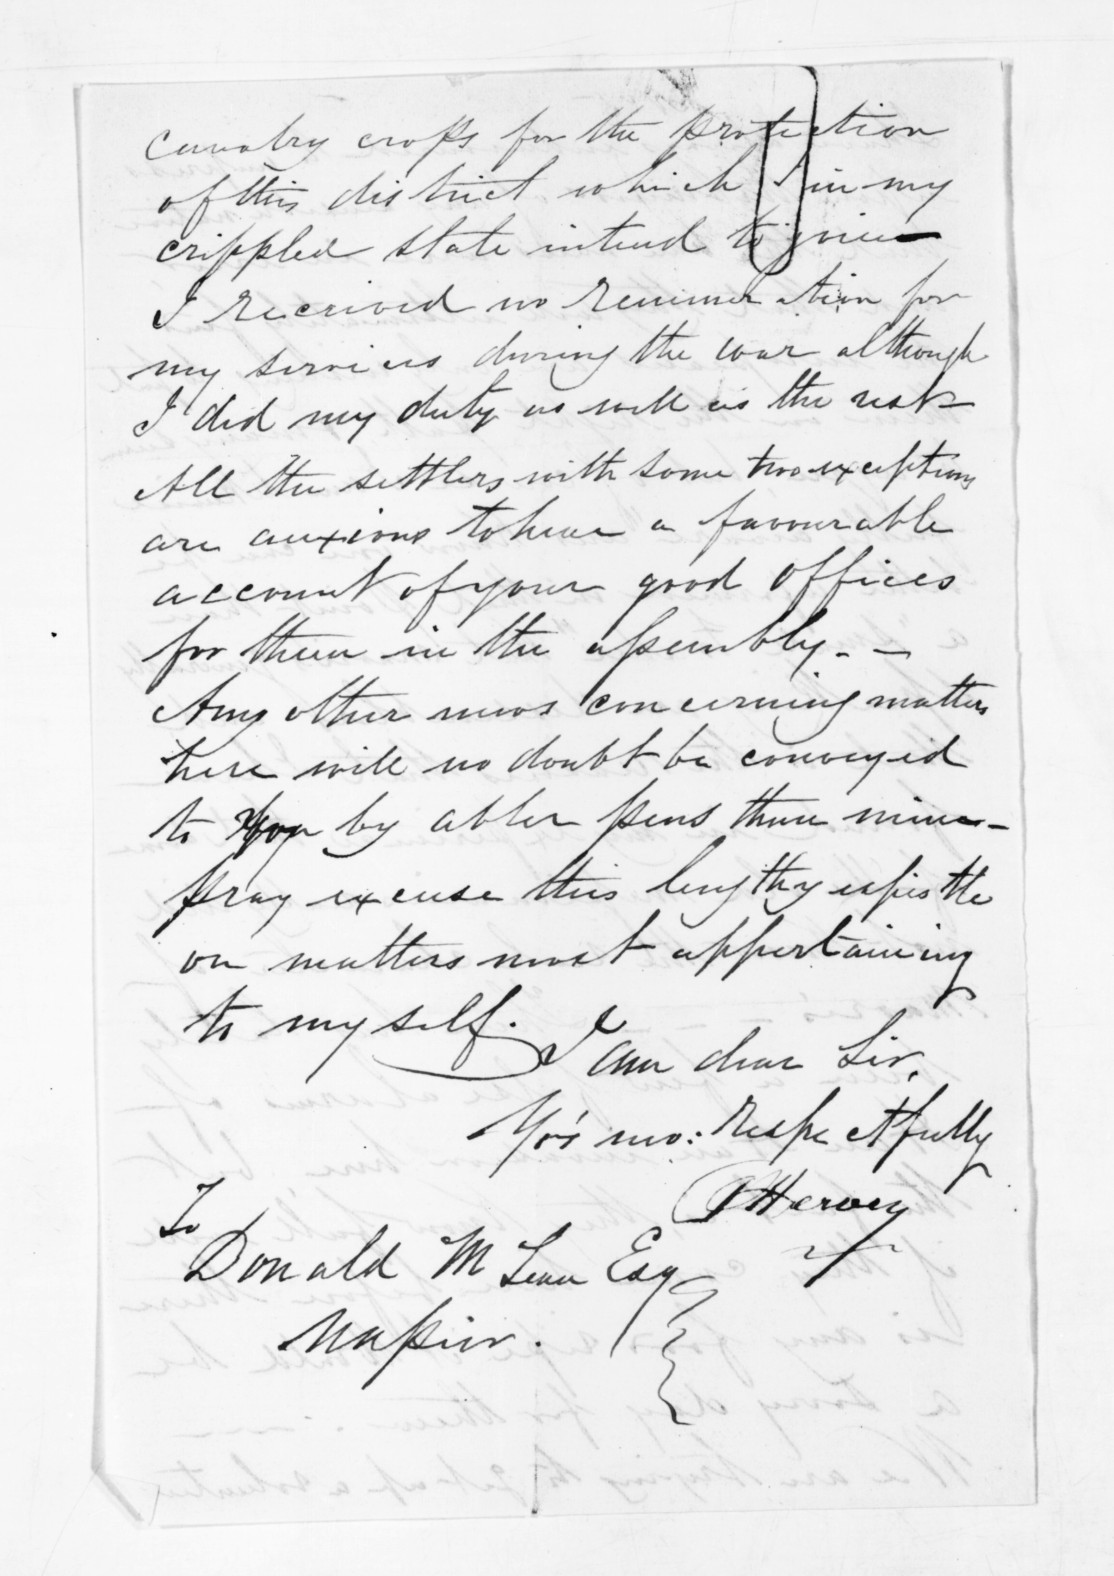 Cavalry crops for the protection
of this district which I in my
crippled state intend to join
I received no remuneration for
my services during the war although
I did my duty as well as the rest
All the settlers with some two exceptions
are anxious to hear a favourable
account of your good offices
for them in the assembly. -
Any other news concerning matters
here will no doubt be conveyed
to you by abler pens than mine -
pray excuse this lengthy espistle
on matters most appertaining
to myself.
I am dear Sir,
Yo's mo: respectfully
Hervey
To
Donald McLean Esq
Napier.